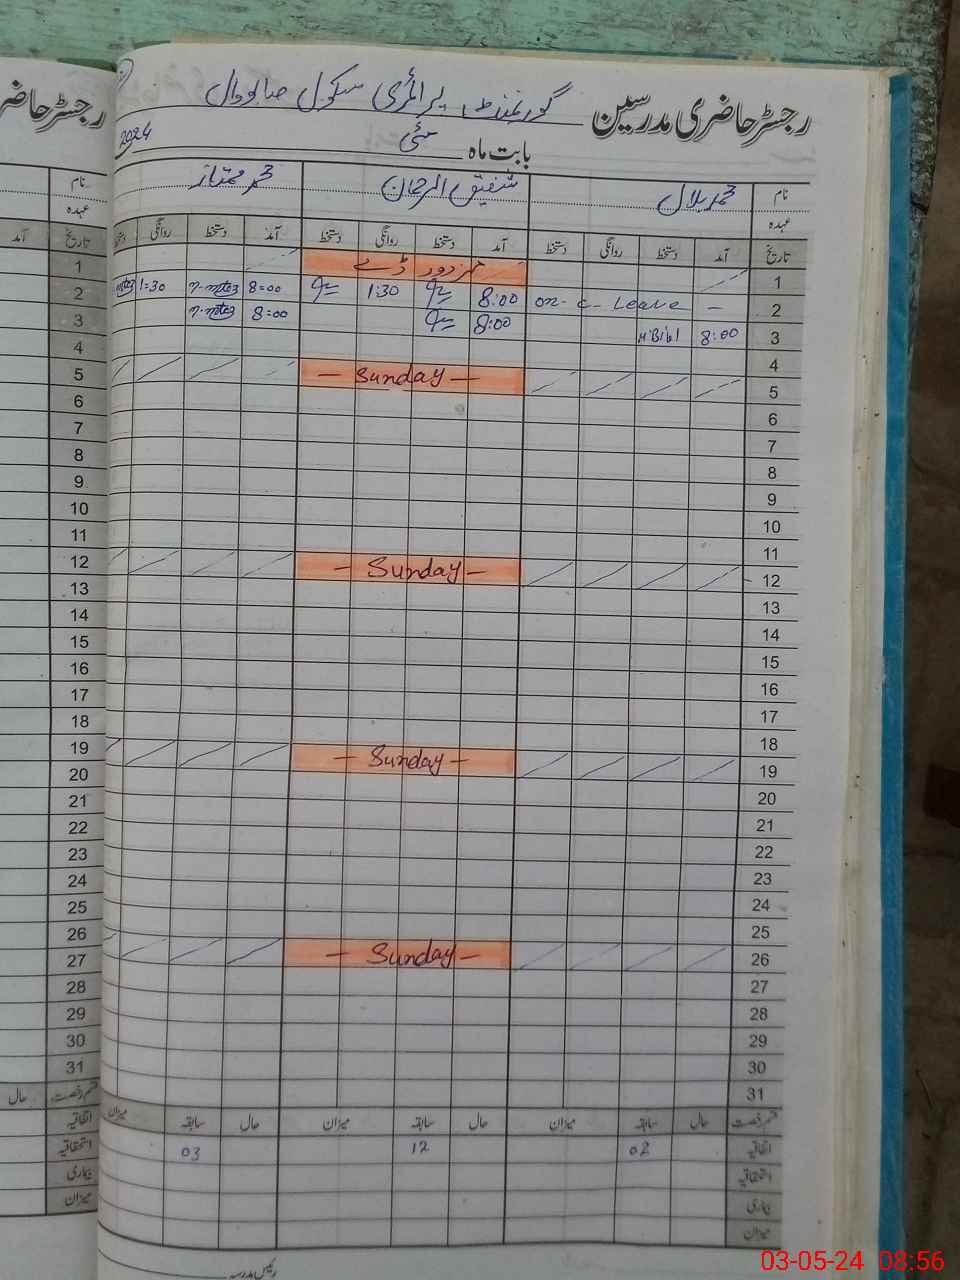 رجسٹر حاضری مدرسین گورنمنٹ پرائمری سکول
بابت ماہ مئی 2024
نام محمد بلال شفیق الرحمان محمد ممتاز
عہدہ
تاریخ آمد دستخط روانگی دستخط آمد دستخط روانگی دستخط آمد دستخط روانگی دستخط
1 مزدور ڈے
2 — on- c- Leave 8:00 1:30 8=00 1=30
3 8:00 M.Bilal 8:00 8=00
4
5 — Sunday —
6
7
8
9
10
11
12 — Sunday —
13
14
15
16
17
18
19 — Sunday —
20
21
22
23
24
25
26 — Sunday —
27
28
29
30
31
قسم رخصت حال سابقہ میزان حال سابقہ میزان حال سابقہ میزان
اتفاقیہ 02 12 03
استحقاقیہ
بیماری
میزان
رئیس مدرسہ
رجسٹر حاضر
نام
عہدہ
تاریخ آمد
1
2
3
4
5
6
7
8
9
10
11
12
13
14
15
16
17
18
19
20
21
22
23
24
25
26
27
28
29
30
31
قسم رخصت حال
اتفاقیہ
استحقاقیہ
بیماری
میزان
03-05-24 08:56